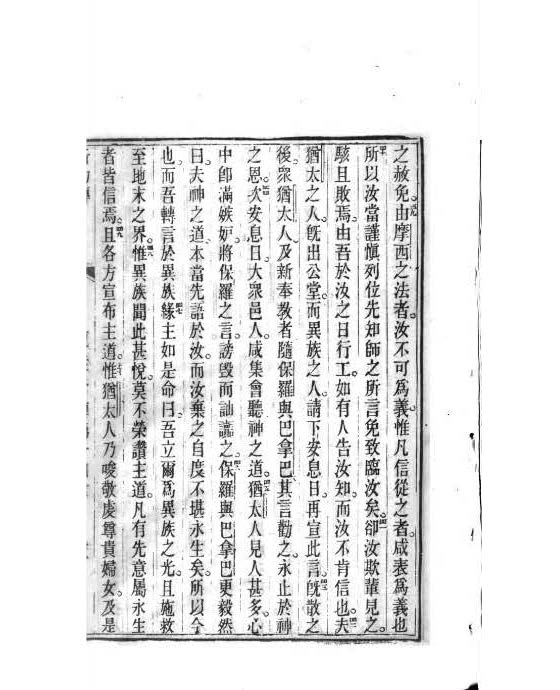 之赦免由摩西之法者。汝不可爲義。惟凡信從之者。咸表爲義也
所以汝當謹愼列位先知師之所言免致臨汝矣。卻汝欺輩見之。
駭且敗焉。由吾於汝之日行工。如有人告汝知。而汝不肯信也。夫
猶太之人。旣出公堂。而異族之人。請下安息日。再宣此言。旣散之
後。衆猶太人。及新奉敎者隨保羅與巴拿巴。其言勸之。永止於神
之恩。次安息日。大衆邑人。咸集會聽神之道。猶太人見人甚多。心
中卽滿嫉妒。將保羅之言。謗毀而訕讟之。保羅與巴拿巴更毅然
曰。夫神之道。本當先語於汝。而汝棄之自度不堪永生矣。所以今
也而吾轉言於異族。緣主如是命曰。吾立爾爲異族之光。且施救
至地末之界。惟異族聞此甚悅。莫不榮讚主道。凡有先意屬永生
者皆信焉。且各方宣布主道。惟猶太人乃唆敬虔尊貴婦女。及是